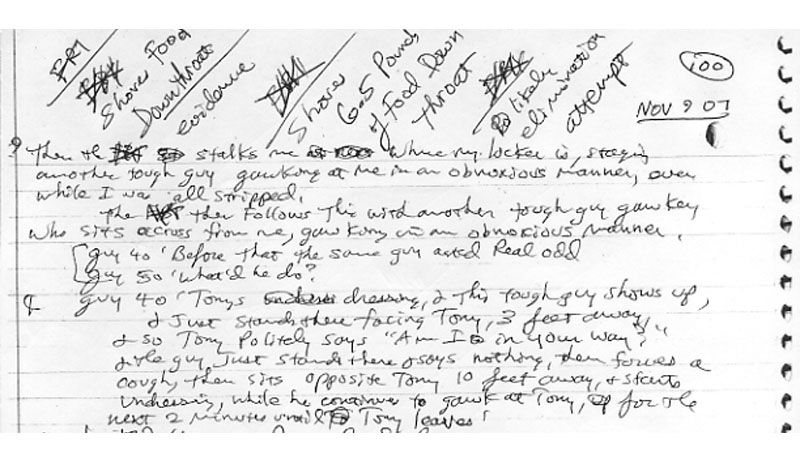 FRI
Shoves Food
Down throat
evidence
Shove
6.5 Pounds
of Food Down
throat
likely
elimination
attempt
100
NOV 9 07
Then the stalks me where my locker is, staging
another tough guy gawking at me in an obnoxious manner, even
while I was all stripped.
The then follows This with another tough guy gawker
who sits accross from me, gawking in an obnoxious manner.
guy 40 'Before that the same guy acted Real odd
guy 50 'What'd he do?
& guy 40 'Tonys dressing, & This tough guy shows up,
& Just stands there facing Tony, 3 feet away,
& so Tony Politely says "Am I in your way?"
& the guy Just stands there & says nothing, then forces a
cough, then sits opposite Tony 10 feet away, & starts
undressing, while he continues to gawk at Tony, for the
next 2 minutes until Tony leaves'